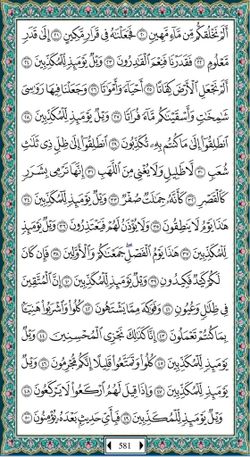 أَلَمْ نَخْلُقكُّم مِّن مَّآءٍ مَّهِينٍ ٢٠ فَجَعَلْنَٰهُ فِى قَرَارٍ مَّكِينٍ ٢١ إِلَىٰ قَدَرٍ
مَّعْلُومٍ ٢٢ فَقَدَرْنَا فَنِعْمَ ٱلْقَٰدِرُونَ ٢٣ وَيْلٌ يَوْمَئِذٍ لِّلْمُكَذِّبِينَ ٢٤
أَلَمْ نَجْعَلِ ٱلْأَرْضَ كِفَاتًا ٢٥ أَحْيَآءً وَأَمْوَٰتًا ٢٦ وَجَعَلْنَا فِيهَا رَوَٰسِىَ
شَٰمِخَٰتٍ وَأَسْقَيْنَٰكُم مَّآءً فُرَاتًا ٢٧ وَيْلٌ يَوْمَئِذٍ لِّلْمُكَذِّبِينَ ٢٨
ٱنطَلِقُوٓا۟ إِلَىٰ مَا كُنتُم بِهِۦ تُكَذِّبُونَ ٢٩ ٱنطَلِقُوٓا۟ إِلَىٰ ظِلٍّ ذِى ثَلَٰثِ
شُعَبٍ ٣٠ لَّا ظَلِيلٍ وَلَا يُغْنِى مِنَ ٱللَّهَبِ ٣١ إِنَّهَا تَرْمِى بِشَرَرٍ
كَٱلْقَصْرِ ٣٢ كَأَنَّهُۥ جِمَٰلَتٌ صُفْرٌ ٣٣ وَيْلٌ يَوْمَئِذٍ لِّلْمُكَذِّبِينَ ٣٤
هَٰذَا يَوْمُ لَا يَنطِقُونَ ٣٥ وَلَا يُؤْذَنُ لَهُمْ فَيَعْتَذِرُونَ ٣٦ وَيْلٌ يَوْمَئِذٍ
لِّلْمُكَذِّبِينَ ٣٧ هَٰذَا يَوْمُ ٱلْفَصْلِ جَمَعْنَٰكُمْ وَٱلْأَوَّلِينَ ٣٨ فَإِن كَانَ
لَكُمْ كَيْدٌ فَكِيدُونِ ٣٩ وَيْلٌ يَوْمَئِذٍ لِّلْمُكَذِّبِينَ ٤٠ إِنَّ ٱلْمُتَّقِينَ
فِى ظِلَٰلٍ وَعُيُونٍ ٤١ وَفَوَٰكِهَ مِمَّا يَشْتَهُونَ ٤٢ كُلُوا۟ وَٱشْرَبُوا۟ هَنِيٓـًٔۢا
بِمَا كُنتُمْ تَعْمَلُونَ ٤٣ إِنَّا كَذَٰلِكَ نَجْزِى ٱلْمُحْسِنِينَ ٤٤ وَيْلٌ يَوْمَئِذٍ
لِّلْمُكَذِّبِينَ ٤٥ كُلُوا۟ وَتَمَتَّعُوا۟ قَلِيلًا إِنَّكُم مُّجْرِمُونَ ٤٦ وَيْلٌ يَوْمَئِذٍ
لِّلْمُكَذِّبِينَ ٤٧ وَإِذَا قِيلَ لَهُمُ ٱرْكَعُوا۟ لَا يَرْكَعُونَ ٤٨
وَيْلٌ يَوْمَئِذٍ لِّلْمُكَذِّبِينَ ٤٩ فَبِأَىِّ حَدِيثٍۭ بَعْدَهُۥ يُؤْمِنُونَ ٥٠
581